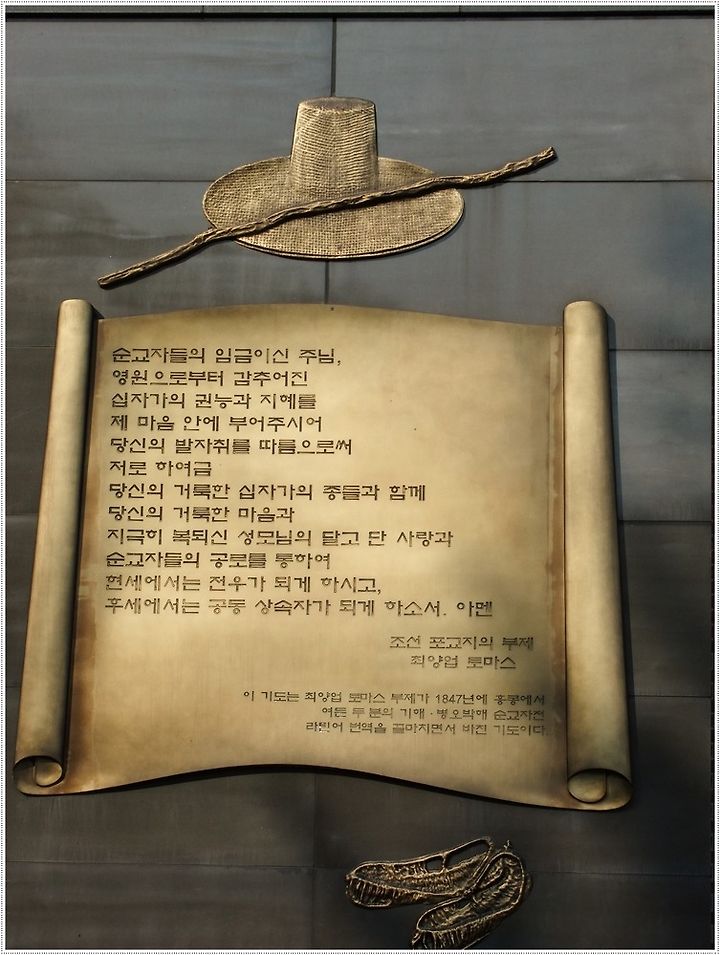 순교자들의 임금이신 주님,
영원으로부터 감추어진
십자가의 권능과 지혜를
제 마음 안에 부어주시어
당신의 발자취를 따름으로써
저로 하여금
당신의 거룩한 십자가의 종들과 함께
당신의 거룩한 마음과
지극히 복되신 성모님의 달고 단 사랑과
순교자들의 공로를 통하여
현세에서는 전우가 되게 하시고,
후세에서는 공동 상속자가 되게 하소서. 아멘
조선 포교지의 부제
최양업 토마스
이 기도는 최양업 토마스 부제가 1847년에 홍콩에서
여든 두 분의 기해·병오박해 순교자전
라틴어 번역을 끝마치면서 바친 기도이다.